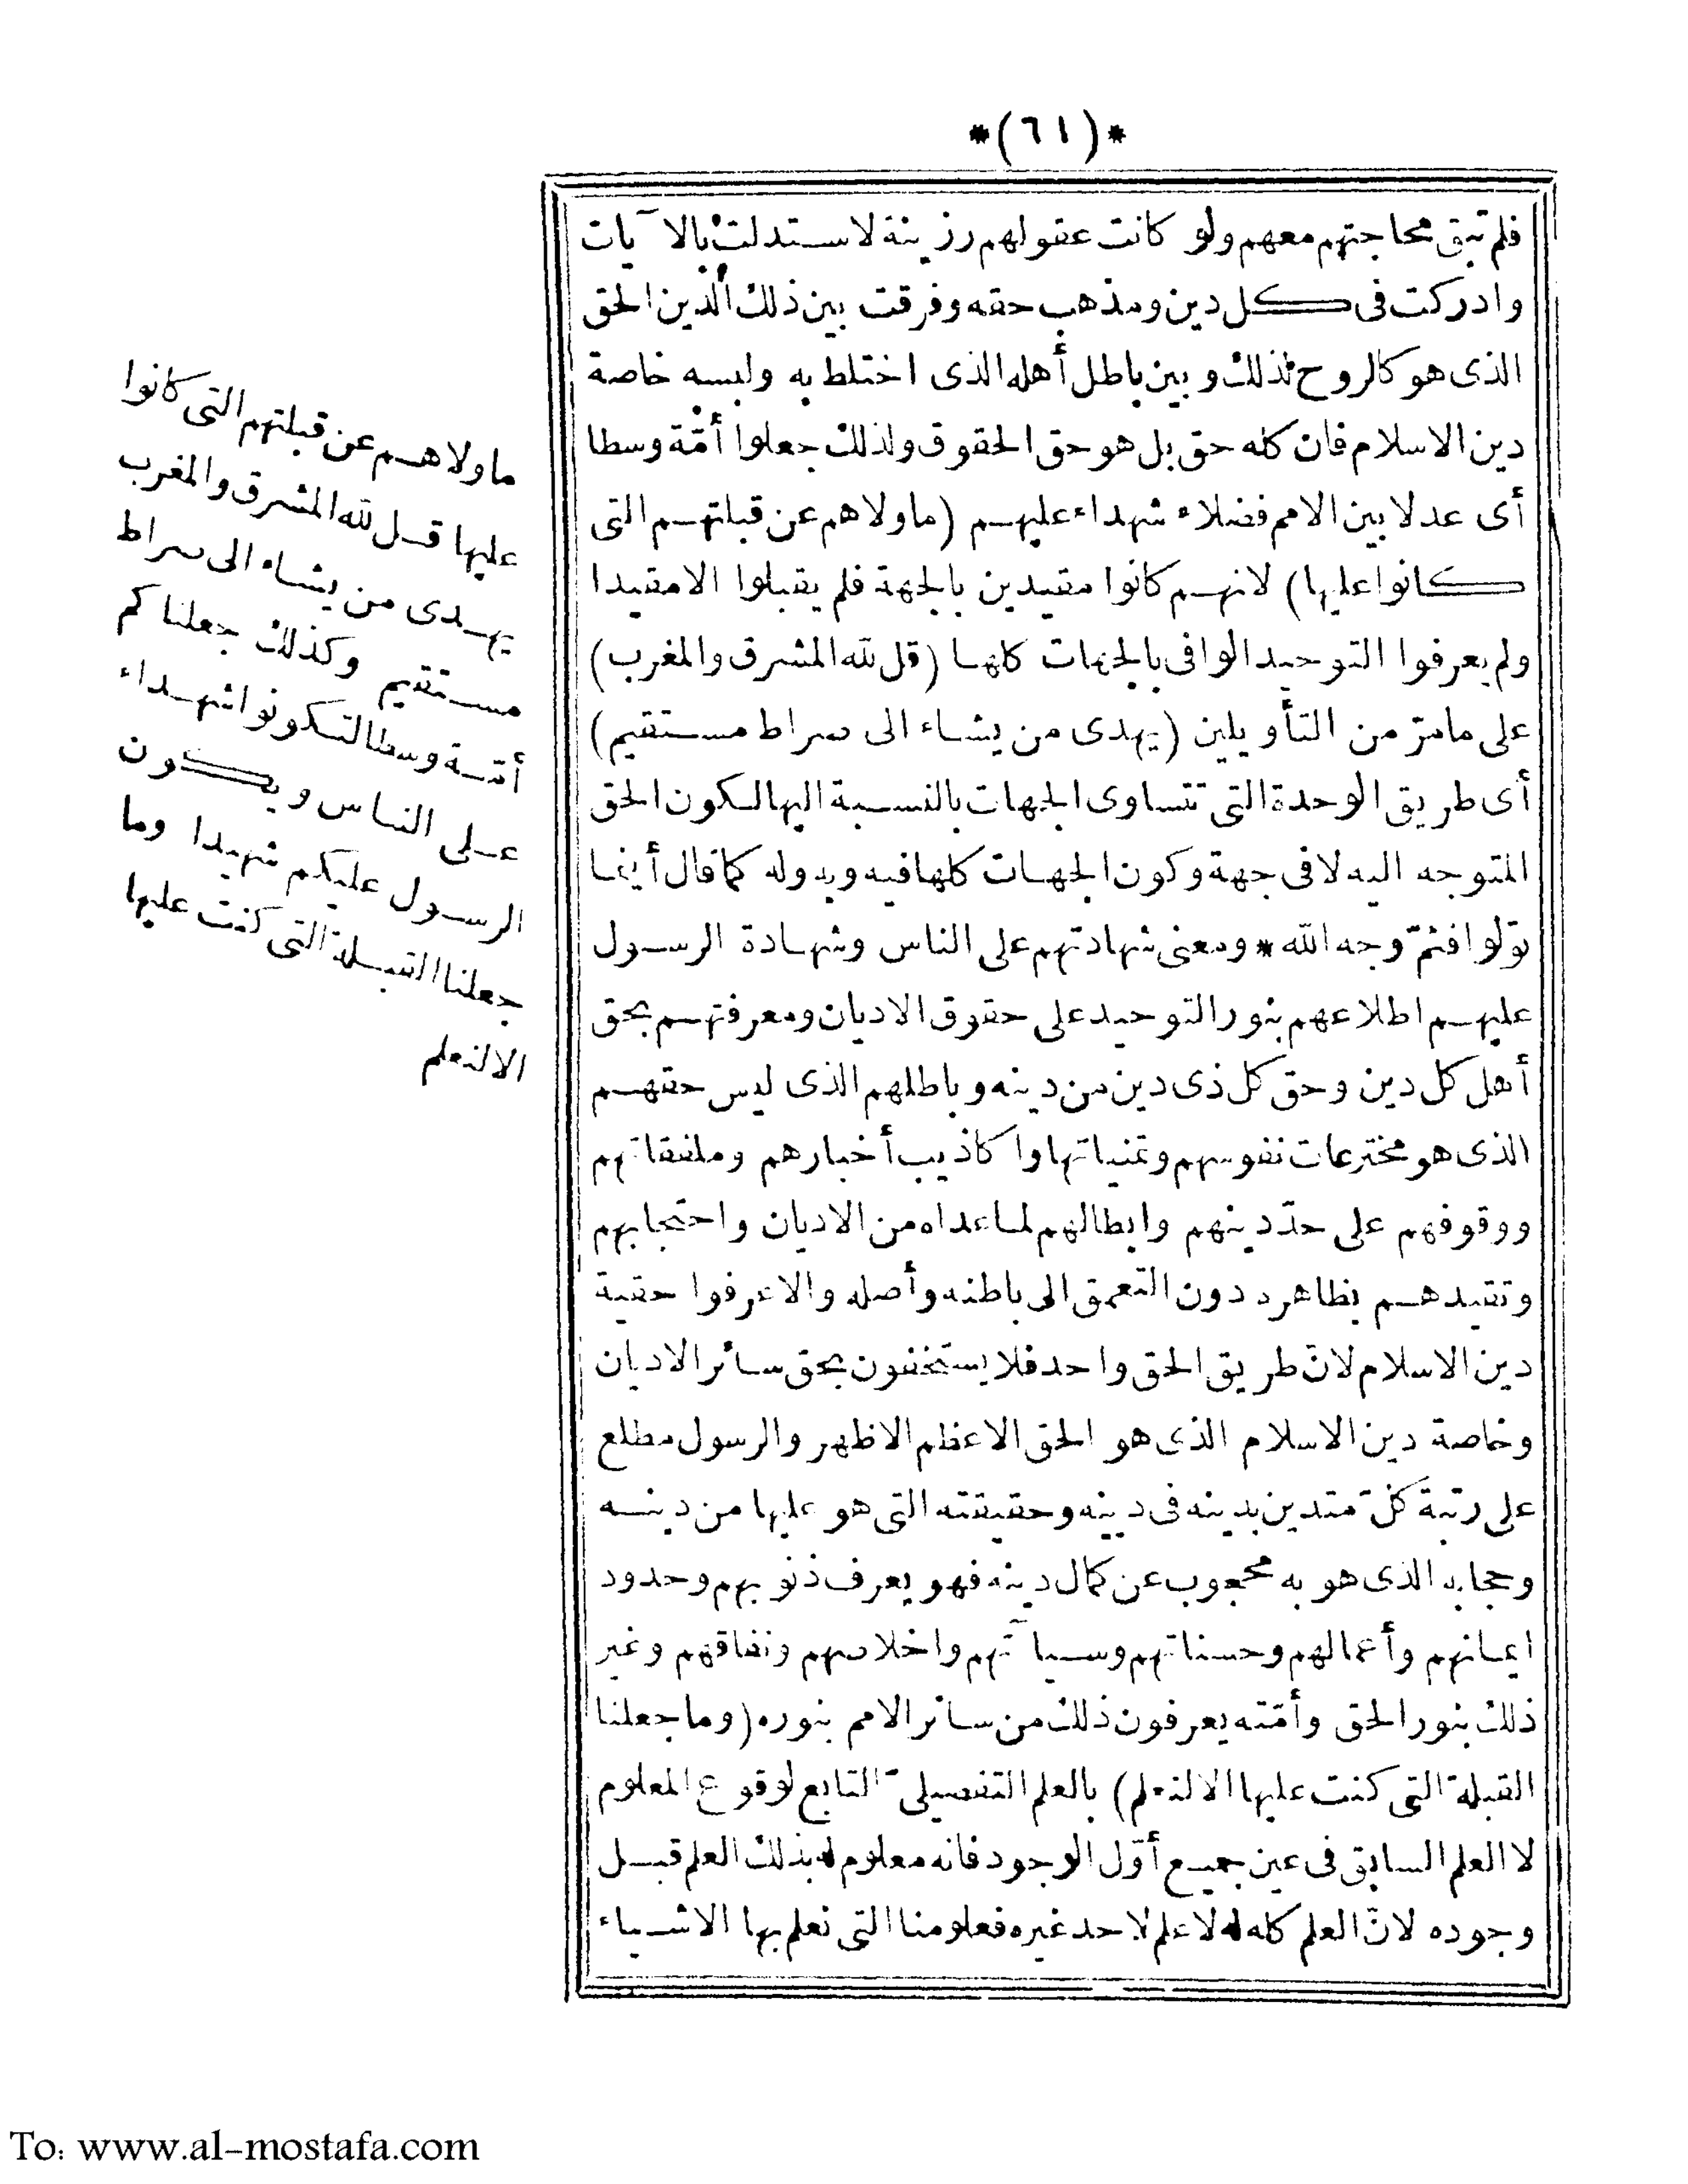 *(٦١)*
فلم تبق محاجتهم معهم ولو كانت عقولهم رزينة لاستدلت بالآيات
وادركت فى كل دين ومذهب حقه وفرقت بين ذلك الدين الحق
الذى هو كالروح لذلك وبين باطل أهله الذى اختلط به ولبسه خاصة
دين الاسلام فان كله حق بل هو حق الحقوق ولذلك جعلوا أمّة وسطا
أى عدلا بين الامم فضلاء شهداء عليهم (ماولاهم عن قبلتهم التى
كانوا عليها) لانهم كانوا مقيدين بالجهة فلم يقبلوا الامقيدا
ولم يعرفوا التوحيد الوافى بالجهات كلها (قل لله المشرق والمغرب)
على مامرّ من التأويلين (يهدى من يشاء الى صراط مستقيم)
أى طريق الوحدة التى تتساوى الجهات بالنسبة اليها لكون الحق
المتوجه اليه لا فى جهة وكون الجهات كلها فيه وبه وله كما قال أينما
تولوا فثمّ وجه الله * ومعنى شهادتهم على الناس وشهادة الرسول
عليهم اطلاعهم بنور التوحيد على حقوق الاديان ومعرفتهم بحق
أهل كل دين وحق كل ذى دين من دينه وباطلهم الذى ليس حقهم
الذى هو مخترعات نفوسهم وتمنياتها واكاذيب أخبارهم وملفقاتهم
ووقوفهم على حدّ دينهم وابطالهم لما عداه من الاديان واحتجابهم
وتقيدهم بظاهره دون التعمق الى باطنه وأصله والا عرفوا حقية
دين الاسلام لانّ طريق الحق واحد فلا يستخفون بحق سائر الاديان
وخاصة دين الاسلام الذى هو الحق الاعظم الاظهر والرسول مطلع
على رتبة كلّ متدين بدينه فى دينه وحقيقته التى هو عليها من دينه
وحجابه الذى هو به محجوب عن كمال دينه فهو يعرف ذنوبهم وحدود
ايمانهم وأعمالهم وحسناتهم وسيآتهم واخلاصهم ونفاقهم وغير
ذلك بنور الحق وأمّته يعرفون ذلك من سائر الامم بنوره (وما جعلنا
القبلة التى كنت عليها الا لنعلم) بالعلم التفصيلىّ التابع لوقوع المعلوم
لا العلم السابق فى عين جميع أوّل الوجود فانه معلوم له بذلك العلم قبل
وجوده لانّ العلم كله له لا علم لاحد غيره فعلومنا التى نعلم بها الاشياء
ماولاهم عن قبلتهم التى كانوا
عليها قل لله المشرق والمغرب
يهدى من يشاء الى صراط
مستقيم وكذلك جعلناكم
أمّة وسطا لتكونوا شهداء
على الناس ويكون
الرسول عليكم شهيدا وما
جعلنا القبلة التى كنت عليها
الا لنعلم
To: www.al-mostafa.com